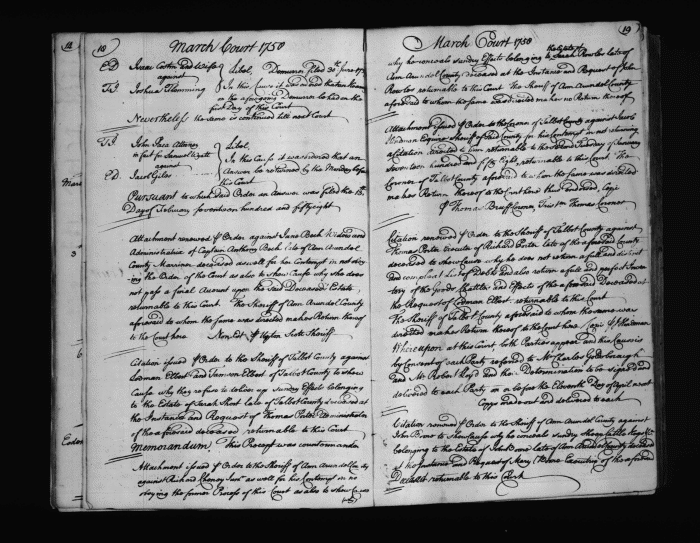 18
March Court 1758
Isaac Costin and Wife
against
Joshua Flemming
Libel, Demurrer filed 30th June
In this Cause it is ordered that an
on the aforegoing Demurrer be had on the
first Day of this Court
Nevertheless the same is continued till next Court
John Paca Attorney
in fact for Samuel
against
Jacob Giles
Libel,
In this Cause it is ordered that an
Answer be returned by the Monday before
this Court
Pursuant to which said Order an Answer was filed the 18th
Day of February Seventeen hundred and fifty eight
Attachment renewed & Order against Jane Beck Widow and
Administratrix of Captain Anthony Beck late of Ann Arundel
County Mariner deceased as well for her Contempt in not obey
ing the Order of the Court as also to shew Cause why she does
not pass a final Account upon the said Deceased's Estate,
returnable to this Court. The Sheriff of Ann Arundel County
aforesaid to whom the same was directed makes Return thereof
to the Court here Non Est & Upton Scott Sheriff
Citation issued & Order to the Sheriff of Talbot County against
Lodman Elbert and Samson Elbert of Talbot County to shew
Cause why they refuse to deliver up sundry Effects belonging
to the Estate of Sarah Short late of Talbot County deceased at
the Instance and Request of Thomas Porter Administrator
of the aforesaid deceased returnable to this Court
Memorandum, This Precept was countermanded
Attachment issued & Order to the Sheriff of Ann Arundel County
against Richard Cheney Junr as well for his Contempt in not
obeying the former Process of this Court as also to shew Cause
19
March Court 1758
the Estate of
why he conceals sundry Effects belonging to Sarah Rowles late of
Ann Arundel County deceased at the Instance and Request of John
Rowles returnable to this Court The Sheriff of Ann Arundel County
aforesaid to whom the same is directed makes no Return thereof
Attachment issued & Order to the Coroner of Talbot County against Jacob
Hindman Esquire Sheriff of said County for his Contempt in not returning
a Citation directed to him returnable to the Second Tuesday of January
Seventeen hundred and fifty Eight, returnable to this Court. The
Coroner of Talbot County aforesaid to whom the same was directed
makes Return thereof to the Court here thus Endorsed, Cepi
& Thomas Bruff Coroner, Tristm Thomas Coroner
Citation renewed & Order to the Sheriff of Talbot County against
Thomas Porter Executor of Richard Porter late of the aforesaid County
deceased to shew Cause why he does not return a full and distinct
and compleat List of Debts and also return a full and perfect Inven
tory of the Goods Chattles and Effects of the aforesaid Deceased at
the Request of Lodman Elbert. returnable to this Court
The Sheriff of Talbot County aforesaid to whom the same was
directed makes Return thereof to the Court here Cepi & J Hindman
Whereupon at this Court both Parties appear and this Cause is
by Consent of each Party referred to Mr Charles Goldsborough
and Mr Robert Loyd and the Determination to be signed and
delivered to each Party on or before the Eleventh Day of April next
Copys made out and delivered to each
Citation renewed & Order to the Sheriff of Ann Arundel County against
John Bone to shew Cause why he conceals sundry
belonging to the Estate of John Bone late of Ann Arundel County deceased
at the Instance and Request of Mary Bone Executrix of the aforesaid
Deceased returnable to this Court